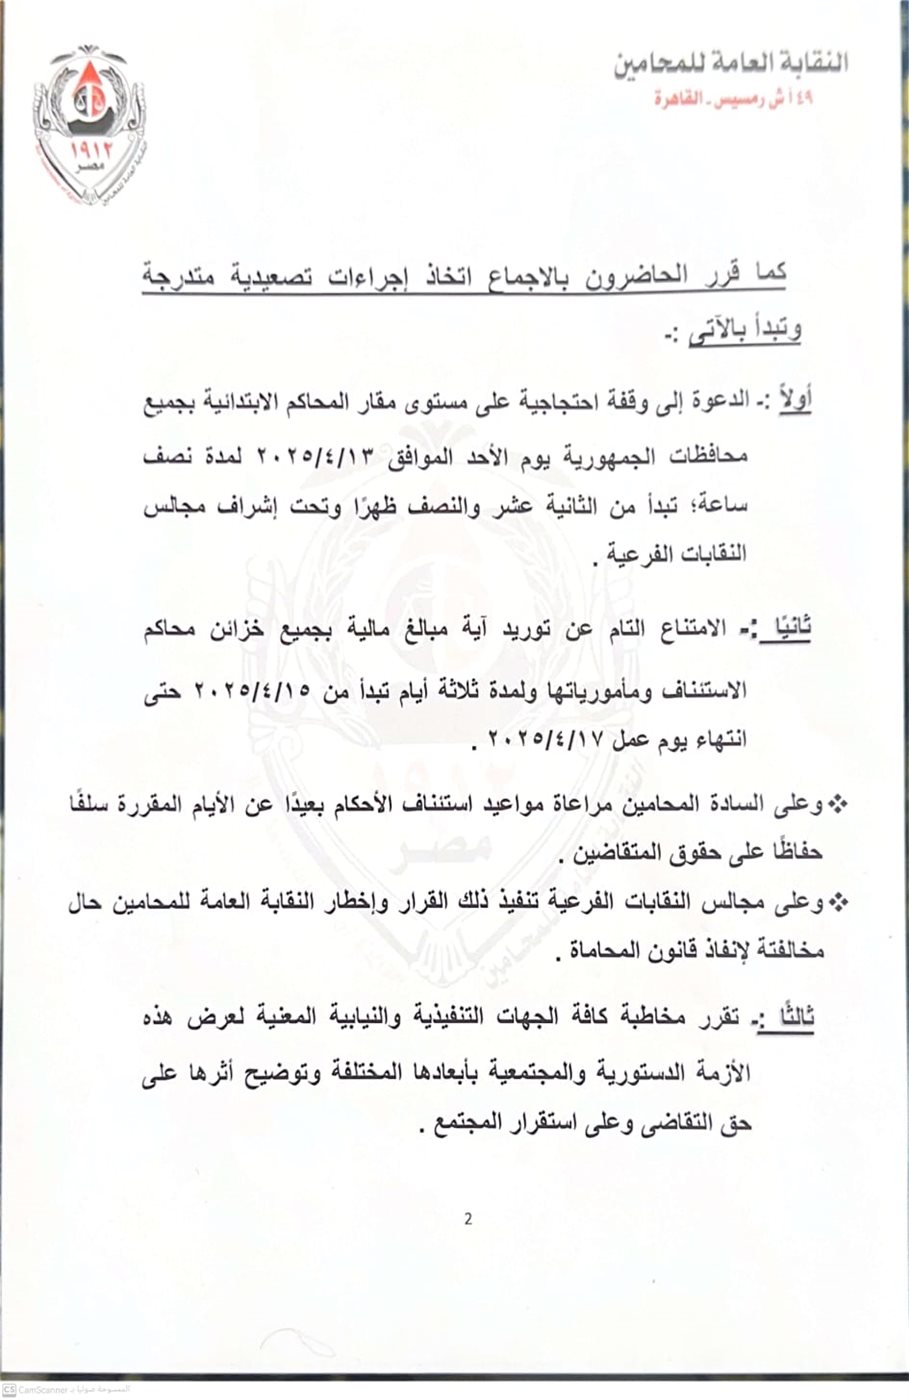 النقابة العامة للمحامين
٤٩ أ ش رمسيس - القاهرة
١٩١٢
مصر
كما قرر الحاضرون بالاجماع اتخاذ إجراءات تصعيدية متدرجة
وتبدأ بالآتى :-
أولاً :- الدعوة إلى وقفة احتجاجية على مستوى مقار المحاكم الابتدائية بجميع
محافظات الجمهورية يوم الأحد الموافق ٢٠٢٥/٤/١٣ لمدة نصف
ساعة؛ تبدأ من الثانية عشر والنصف ظهرًا وتحت إشراف مجالس
النقابات الفرعية .
ثانيًا :- الامتناع التام عن توريد آية مبالغ مالية بجميع خزائن محاكم
الاستئناف ومأمورياتها ولمدة ثلاثة أيام تبدأ من ٢٠٢٥/٤/١٥ حتى
انتهاء يوم عمل ٢٠٢٥/٤/١٧ .
❖ وعلى السادة المحامين مراعاة مواعيد استئناف الأحكام بعيدًا عن الأيام المقررة سلفًا
حفاظًا على حقوق المتقاضين .
❖ وعلى مجالس النقابات الفرعية تنفيذ ذلك القرار وإخطار النقابة العامة للمحامين حال
مخالفتة لإنفاذ قانون المحاماة .
ثالثًا :- تقرر مخاطبة كافة الجهات التنفيذية والنيابية المعنية لعرض هذه
الأزمة الدستورية والمجتمعية بأبعادها المختلفة وتوضيح أثرها على
حق التقاضى وعلى استقرار المجتمع .
2
CS CamScanner الممسوحة ضوئيا بـ